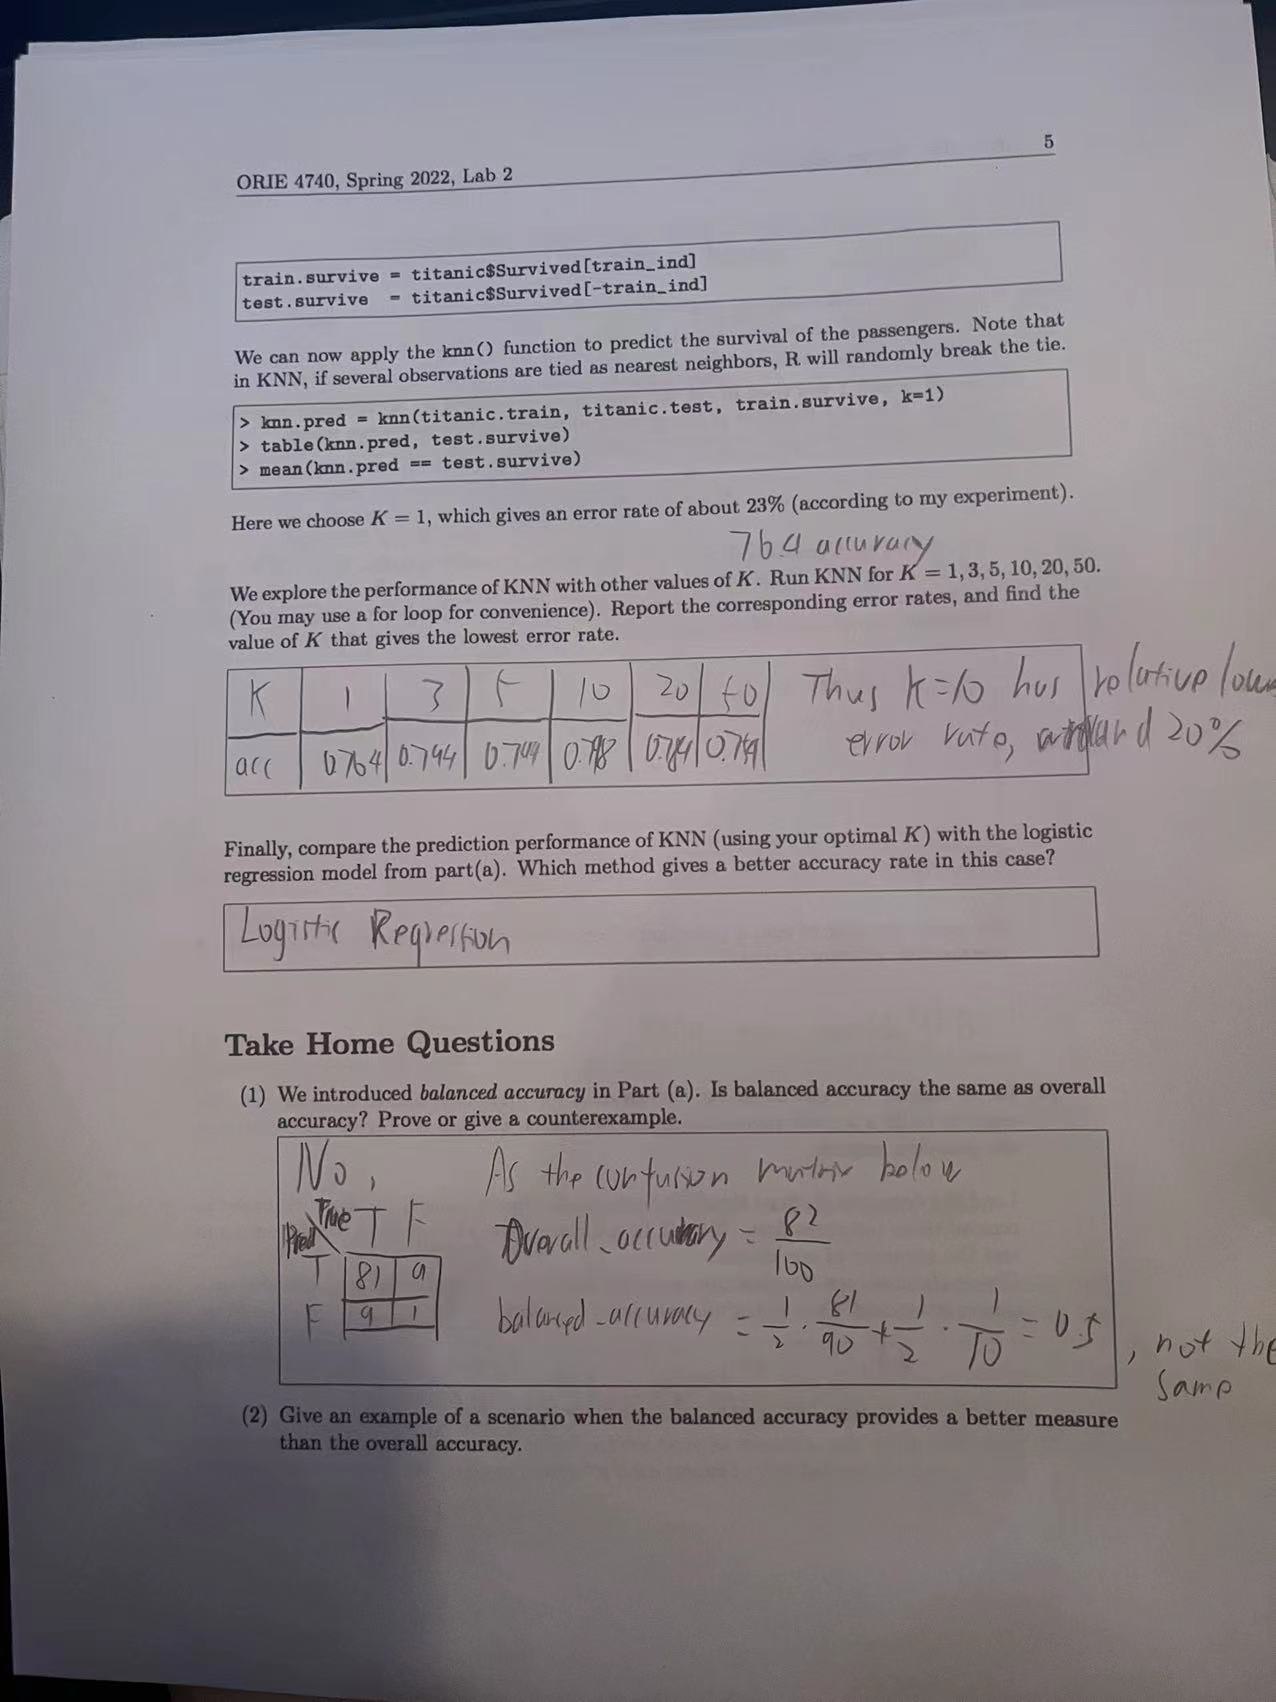 5
ORIE 4740, Spring 2022, Lab 2
train.survive = titanic$Survived[train_ind]
test.survive = titanic$Survived[-train_ind]
We can now apply the knn() function to predict the survival of the passengers. Note that
in KNN, if several observations are tied as nearest neighbors, R will randomly break the tie.
> knn.pred = knn(titanic.train, titanic.test, train.survive, k=1)
> table(knn.pred, test.survive)
> mean(knn.pred == test.survive)
Here we choose K = 1, which gives an error rate of about 23% (according to my experiment).
76.4 accuracy
We explore the performance of KNN with other values of K. Run KNN for K = 1, 3, 5, 10, 20, 50.
(You may use a for loop for convenience). Report the corresponding error rates, and find the
value of K that gives the lowest error rate.
K 1 3 5 10 20 50 Thus K=10 has relative
acc 0.764 0.794 error rate, 20%
Finally, compare the prediction performance of KNN (using your optimal K) with the logistic
regression model from part(a). Which method gives a better accuracy rate in this case?
Logistic Regression
Take Home Questions
(1) We introduced balanced accuracy in Part (a). Is balanced accuracy the same as overall
accuracy? Prove or give a counterexample.
No, As the confusion matrix below
Pred True T F Overall_accuracy = 82/100
T 81 9
F 9 1 balanced_accuracy = 1/2 · 81/90 + 1/2 · 1/10 = 0.5, not the
same
(2) Give an example of a scenario when the balanced accuracy provides a better measure
than the overall accuracy.